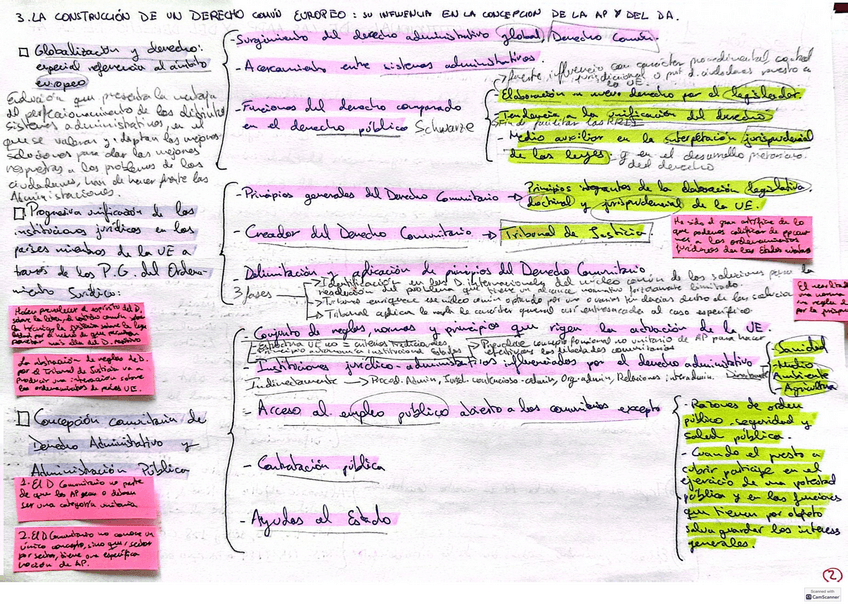 3. LA CONSTRUCCIÓN DE UN DERECHO COMÚN EUROPEO: SU INFLUENCIA EN LA CONCEPCION DE LA AP Y DEL DA.
Globalización y derecho:
especial referencia al ámbito
europeo
Evolución que presenta la ventaja
del perfeccionamiento de los distintos
sistemas administrativos, en el
que se valoran y adaptan las mejores
soluciones para dar las mejores
respuestas a los problemas de los
ciudadanos, han de hacer frente las
Administraciones.
- Surgimiento del derecho administrativo global / Derecho Común.
- Acercamiento entre sistemas administrativos.
- Funciones del derecho comparado
en el derecho público Schwarze
fuerte influencia con carácter procedimental, control
jurisdiccional o prot. d. ciudadanos respecto a
la UE.
- Elaboración de nuevo derecho por el legislador
Tendencia a la unificación del derecho
- Medio auxiliar en la interpretación jurisprudencial
de las leyes - y en el desarrollo
del derecho
Progresiva unificación de las
instituciones jurídicas en los
países miembros de la UE a
través de los P.G. del Ordena-
miento Jurídico:
- Principios generales del Derecho Comunitario → Principios integrantes de la elaboración legislativa,
doctrinal y jurisprudencial de la UE.
- Creador del Derecho Comunitario → Tribunal de Justicia.
Ha sido el gran artífice de lo
que podemos calificar de
a los ordenamientos
jurídicos de los Estados
- Delimitación y aplicación de principios del Derecho Comunitario
3 fases
→ Identificación en los D. internacionales del núcleo común de las soluciones para la
resolución del problema que tienen un alcance normativo limitado.
→ Tribunal enriquece ese núcleo común optando por una o varias tendencias dentro de las soluciones
→ Tribunal aplica la regla de carácter general así entresacada al caso específico.
El resultado
una norma
por la
Hacen prevalecer el espíritu del D.
La abstracción de reglas de D.
por el Tribunal de Justicia va a
producir una interacción sobre
los ordenamientos de países UE.
Concepción comunitaria de
Derecho Administrativo y
Administración Pública
1. El D Comunitario no parte
de que las AP sean o deban
ser una categoría unitaria.
2. El D Comunitario no conoce un
único concepto, sino que sector
por sector, tiene una específica
noción de AP.
- Conjunto de reglas, normas y principios que rigen la actuación de la UE.
- Estructura UE no = criterios tradicionales
- Principio autonomía institucional Estados
→ Propúlsase concepto funcional no unitario de AP para hacer
efectivas las libertades comunitarias
- Instituciones jurídico-administrativas influenciadas por el derecho administrativo
Indirectamente → Proced. Admin, Jurisd. contencioso-admin, Org. admin, Relaciones interadmin.
- Sanidad
- Medio
Ambiente
- Agricultura
- Acceso al empleo público abierto a los comunitarios excepto
- Razones de orden
público, seguridad y
salud pública.
- Cuando el puesto a
cubrir participe en el
ejercicio de una potestad
pública y en las funciones
que tienen por objeto
salvaguardar los intereses
generales.
- Contratación pública
- Ayudas al Estado
2
Scanned with
CamScanner